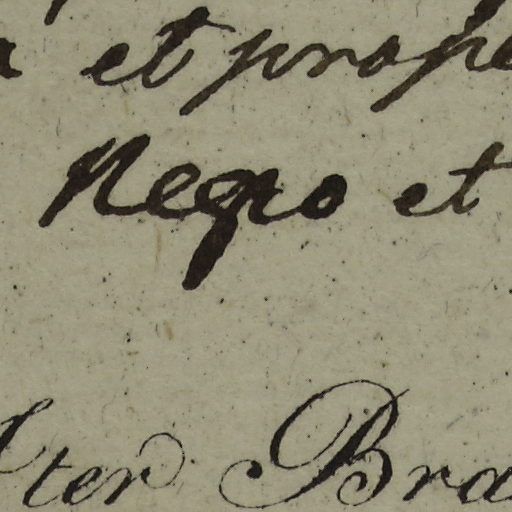 et prope
Negro et
ter Bra